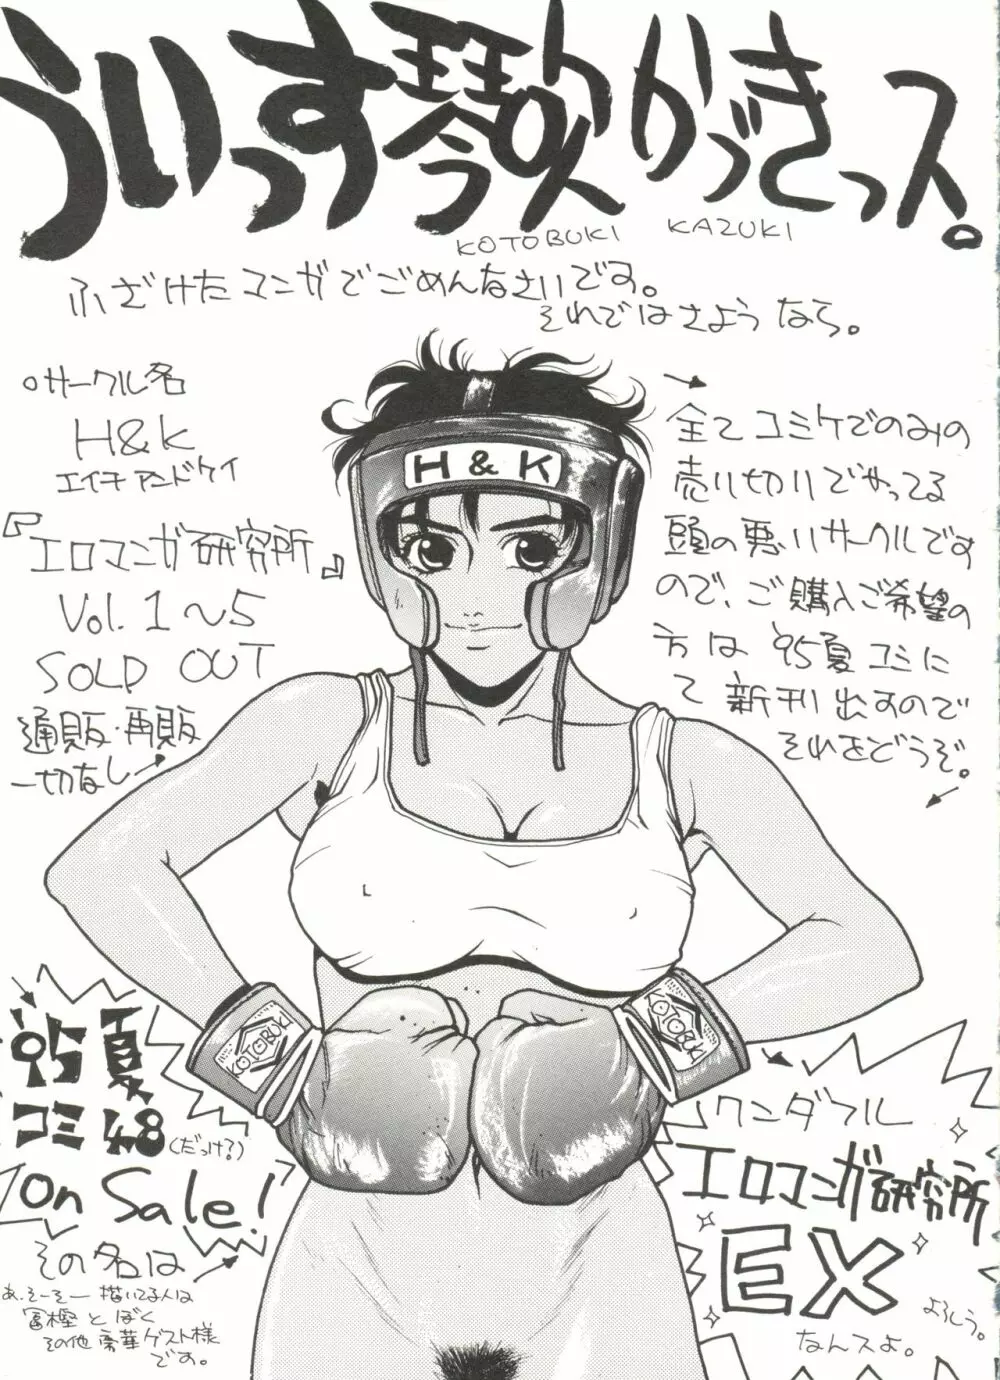 ういっす琴吹かづきっス。
KOTOBUKI KAZUKI
ふざけたマンガでごめんなさいです。
それではさようなら。
○サークル名
H&K
エイチアンドケイ
『エロマンガ研究所』
Vol.1〜5
SOLD OUT
通販・再販
一切なし→
→
全てコミケでのみの
売り切りでやってる
頭の悪いサークルです
ので、ご購入ご希望の
方は'95夏コミに
て新刊出すので
それをどうぞ。
H & K
KOTOBUKI
KOTOBUKI
'95夏
コミ48(だっけ?)
On Sale!
その名は
あ、そーそー描いてる人は
冨樫とぼく
その他豪華ゲスト様
です。
ワンダフル
エロマンガ研究所
EX
よろしう。
なんスよ。